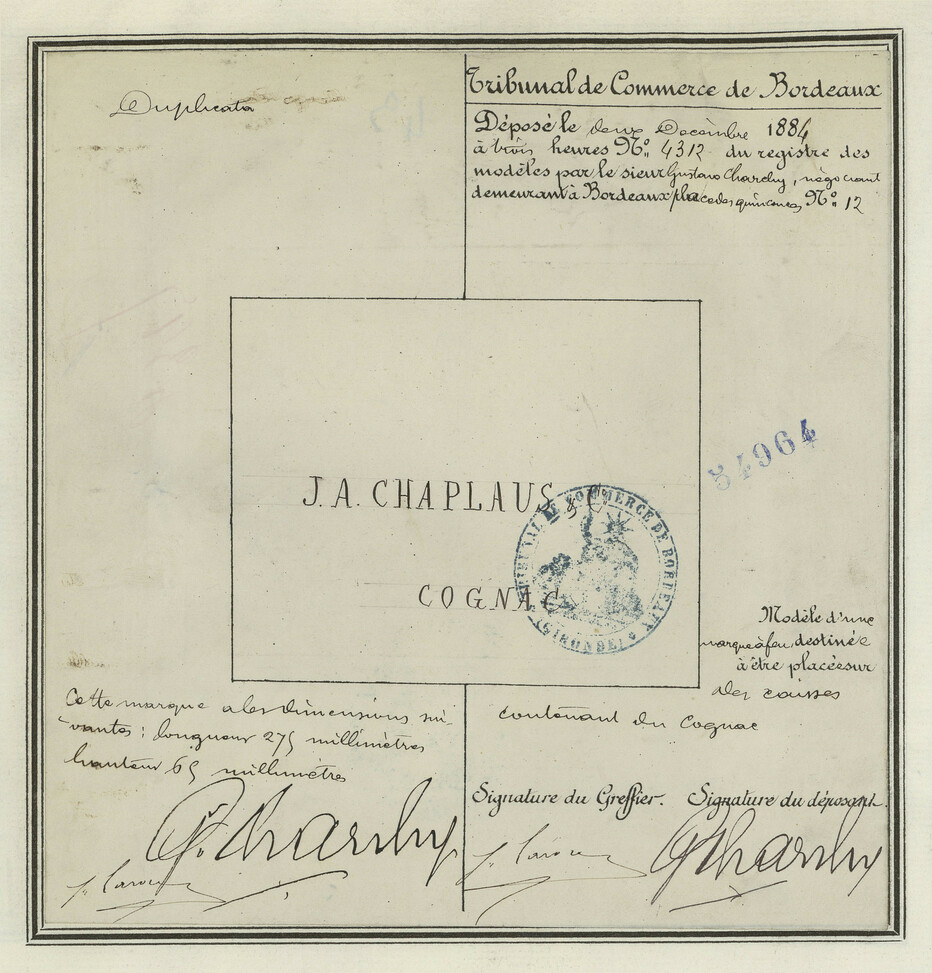 Duplicata
Tribunal de Commerce de Bordeaux
Déposé le deux Decembre 1884
à trois heures No. 4312 du registre des
modèles par le sieur Gustave Chardy, négociant
demeurant à Bordeaux place des quinconces No. 12
54964
J. A. CHAPLAUS & C
COGNAC
TRIBUNAL DE COMMERCE DE BORDEAUX
(GIRONDE)
Modèle d'une
marque à feu, destinée
à être placée sur
des caisses
contenant du Cognac
Cette marque a les dimensions sui-
vantes : longueur 275 millimètres
hauteur 65 millimètres
Signature du Greffier. Signature du déposant.
G. Chardy
GChardy